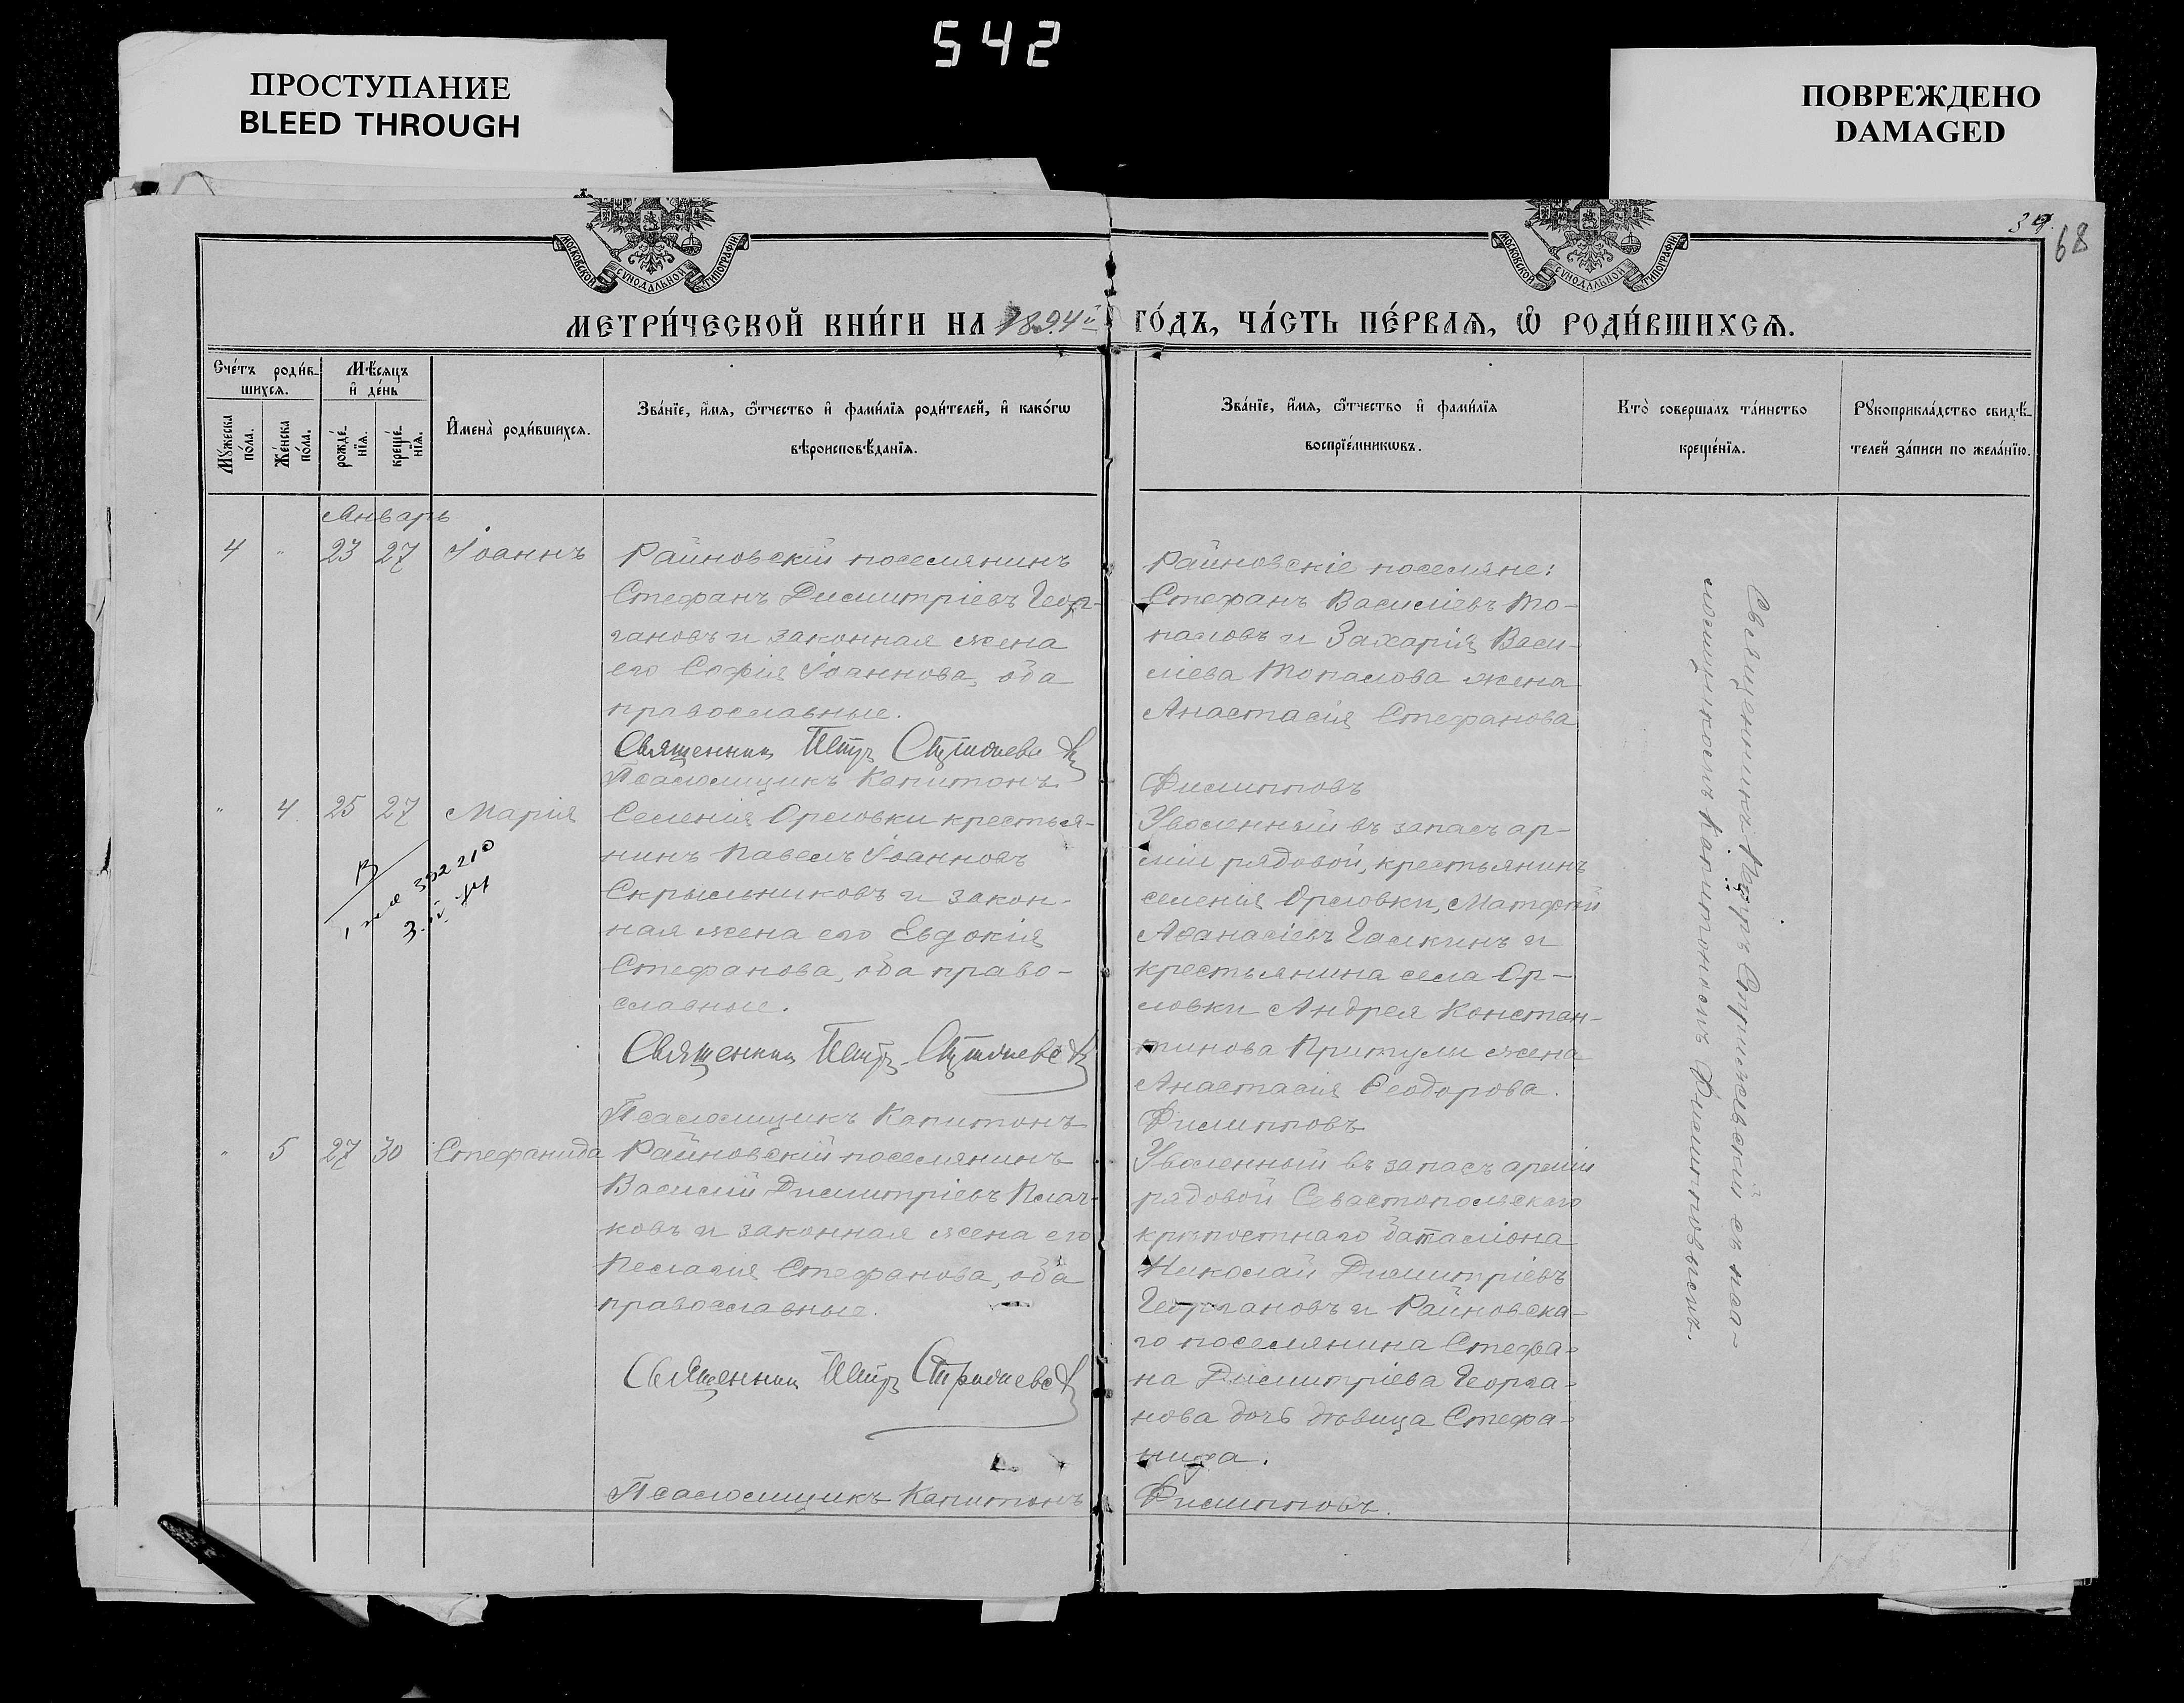 542
ПРОСТУПАНИЕ
BLEED THROUGH
ПОВРЕЖДЕНО
DAMAGED
39.
68
МОСКОВСКОЙ СѴНОДАЛЬНОЙ ТИПОГРАФІИ
МОСКОВСКОЙ СѴНОДАЛЬНОЙ ТИПОГРАФІИ
МЕТРИ́ЧЕСКОЙ КНИ́ГИ НА 1894й ГО́ДЪ, ЧА́СТЬ ПЕ́РВАѦ, Ѡ҆ РОДИ́ВШИХСѦ.
Сче́тъ роди́в-
шихсѧ.
Мꙋ́жеска по́ла.
Же́нска по́ла.
Мѣ́сѧцъ
и҆ де́нь
рожде́-
нїѧ.
креще́-
нїѧ.
И҆мена̀ роди́вшихсѧ.
Зва́нїе, и҆́мѧ, ѻ҆́тчество и҆ фами́лїѧ роди́телей, и҆ како́гѡ
вѣроисповѣ́данїѧ.
Зва́нїе, и҆́мѧ, ѻ҆́тчество и҆ фами́лїѧ
воспрїе́мникѡвъ.
Кто̀ совершалъ та́инство
креще́нїѧ.
Рꙋкоприкла́дство свидѣ́-
телей за́писи по жела́нїю.
Январь
4 " 23 27 Іоаннъ
Райновскій поселянинъ
Стефанъ Димитріевъ Геор-
гановъ и законная жена
его Софія Іоаннова, оба
православные.
Священник Петръ
Псаломщикъ Капитонъ
Райновскіе поселяне:
Стефанъ Василіевъ То-
паловъ и Захарія Васи-
ліева Топалова жена
Анастасія Стефанова
Филипповъ
" 4 25 27 Марія
Селенія Орловки крестья-
нинъ Павелъ Іоанновъ
Скрыльниковъ и закон-
ная жена его Евдокія
Стефанова, оба право-
славные.
Священник Петръ
Псаломщикъ Капитонъ
Уволенный въ запасъ ар-
міи рядовой, крестьянинъ
селенія Орловки, Матфей
Аѳанасіевъ Галкинъ и
крестьянина села Ор-
ловки Андрея Констан-
тинова Притули жена
Анастасія Ѳеодорова.
Филипповъ
" 5 27 30 Стефанида
Райновскій поселянинъ
Василій Димитріевъ Плач-
ковъ и законная жена его
Пелагія Стефанова, оба
православные.
Священник Петръ
Псаломщикъ Капитонъ
Уволенный въ запасъ арміи
рядовой Севастопольскаго
крѣпостнаго баталіона
Николай Димитріевъ
Георгановъ и Райновска-
го поселянина Стефа-
на Димитріева Георга-
нова дочь дѣвица Стефа-
нида.
Филипповъ.
Священникъ Петръ съ псал-
ломщикомъ Капитономъ Филипповымъ.